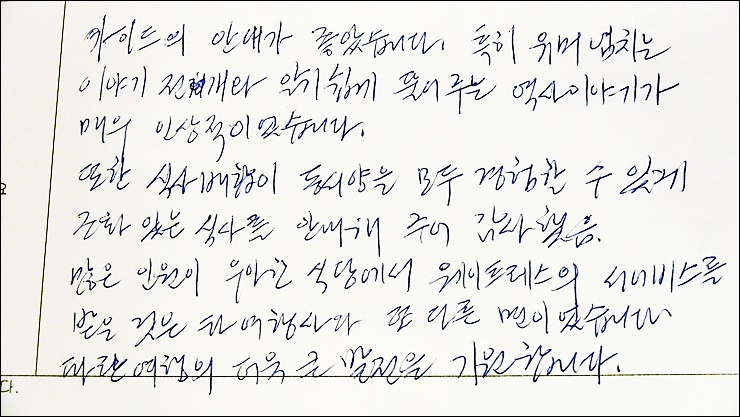 가이드의 안내가 좋았습니다. 특히 유머 넘치는
이야기 전개와 알기쉽게 풀어주는 역사이야기가
매우 인상적이었습니다.
또한 식사배합이 동서양을 모두 경험할 수 있게
조화 있는 식사를 안내해 주어 감사했음.
많은 인원이 우아한 식당에서 웨이트레스의 서비스를
받은 것은 타여행사와 또다른 면이었습니다.
파란여행의 더욱 큰 발전을 기원합니다.
다.